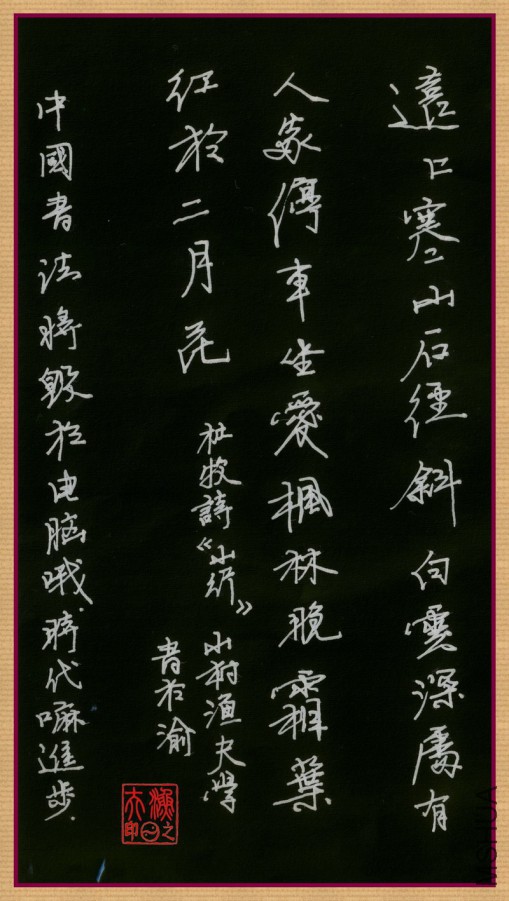 遠上寒山石徑斜白雲深處有
人家停車坐愛楓林晚霜葉
紅於二月花
杜牧詩《山行》山村漁夫學
書於渝
中國書法將毀於电脑哦.時代嘛進步.
MOHUA